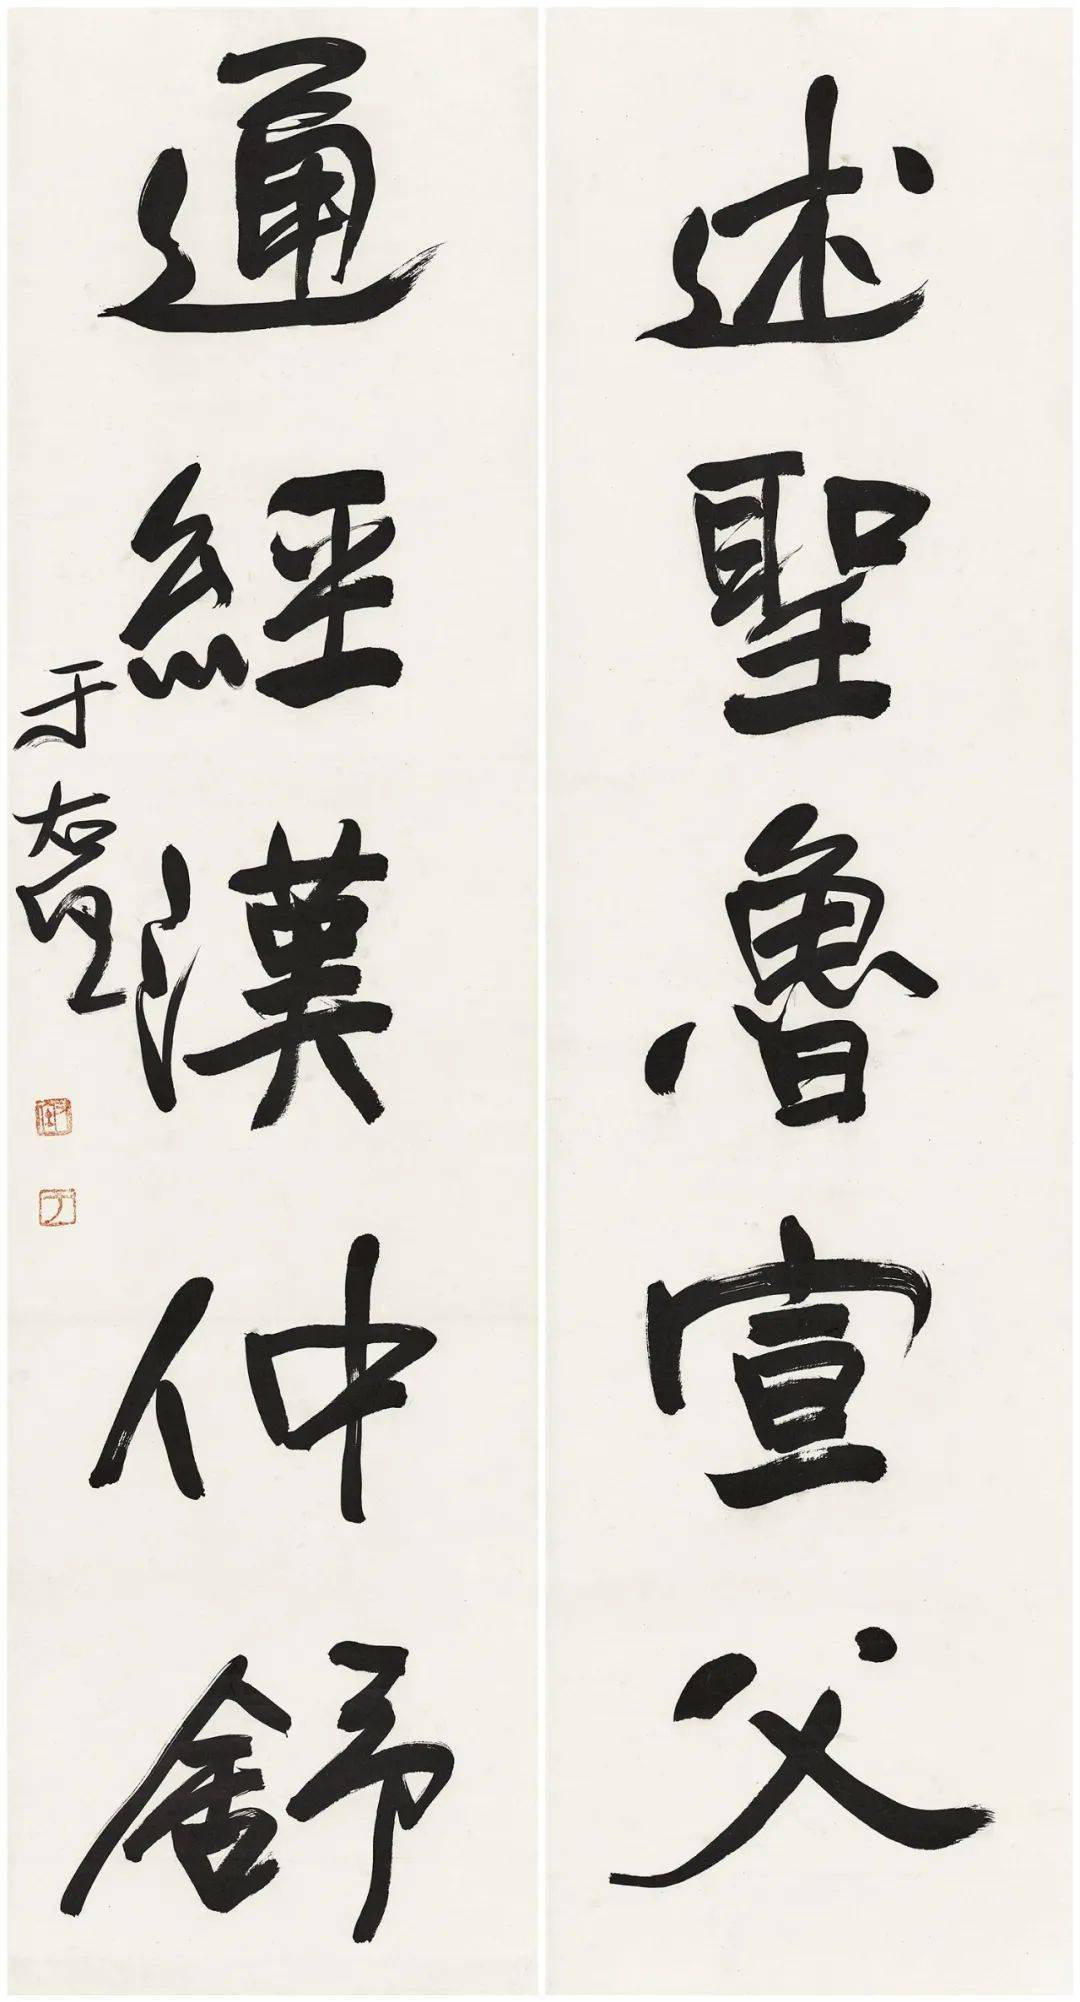 述聖魯宣父
通經漢仲舒
于右任